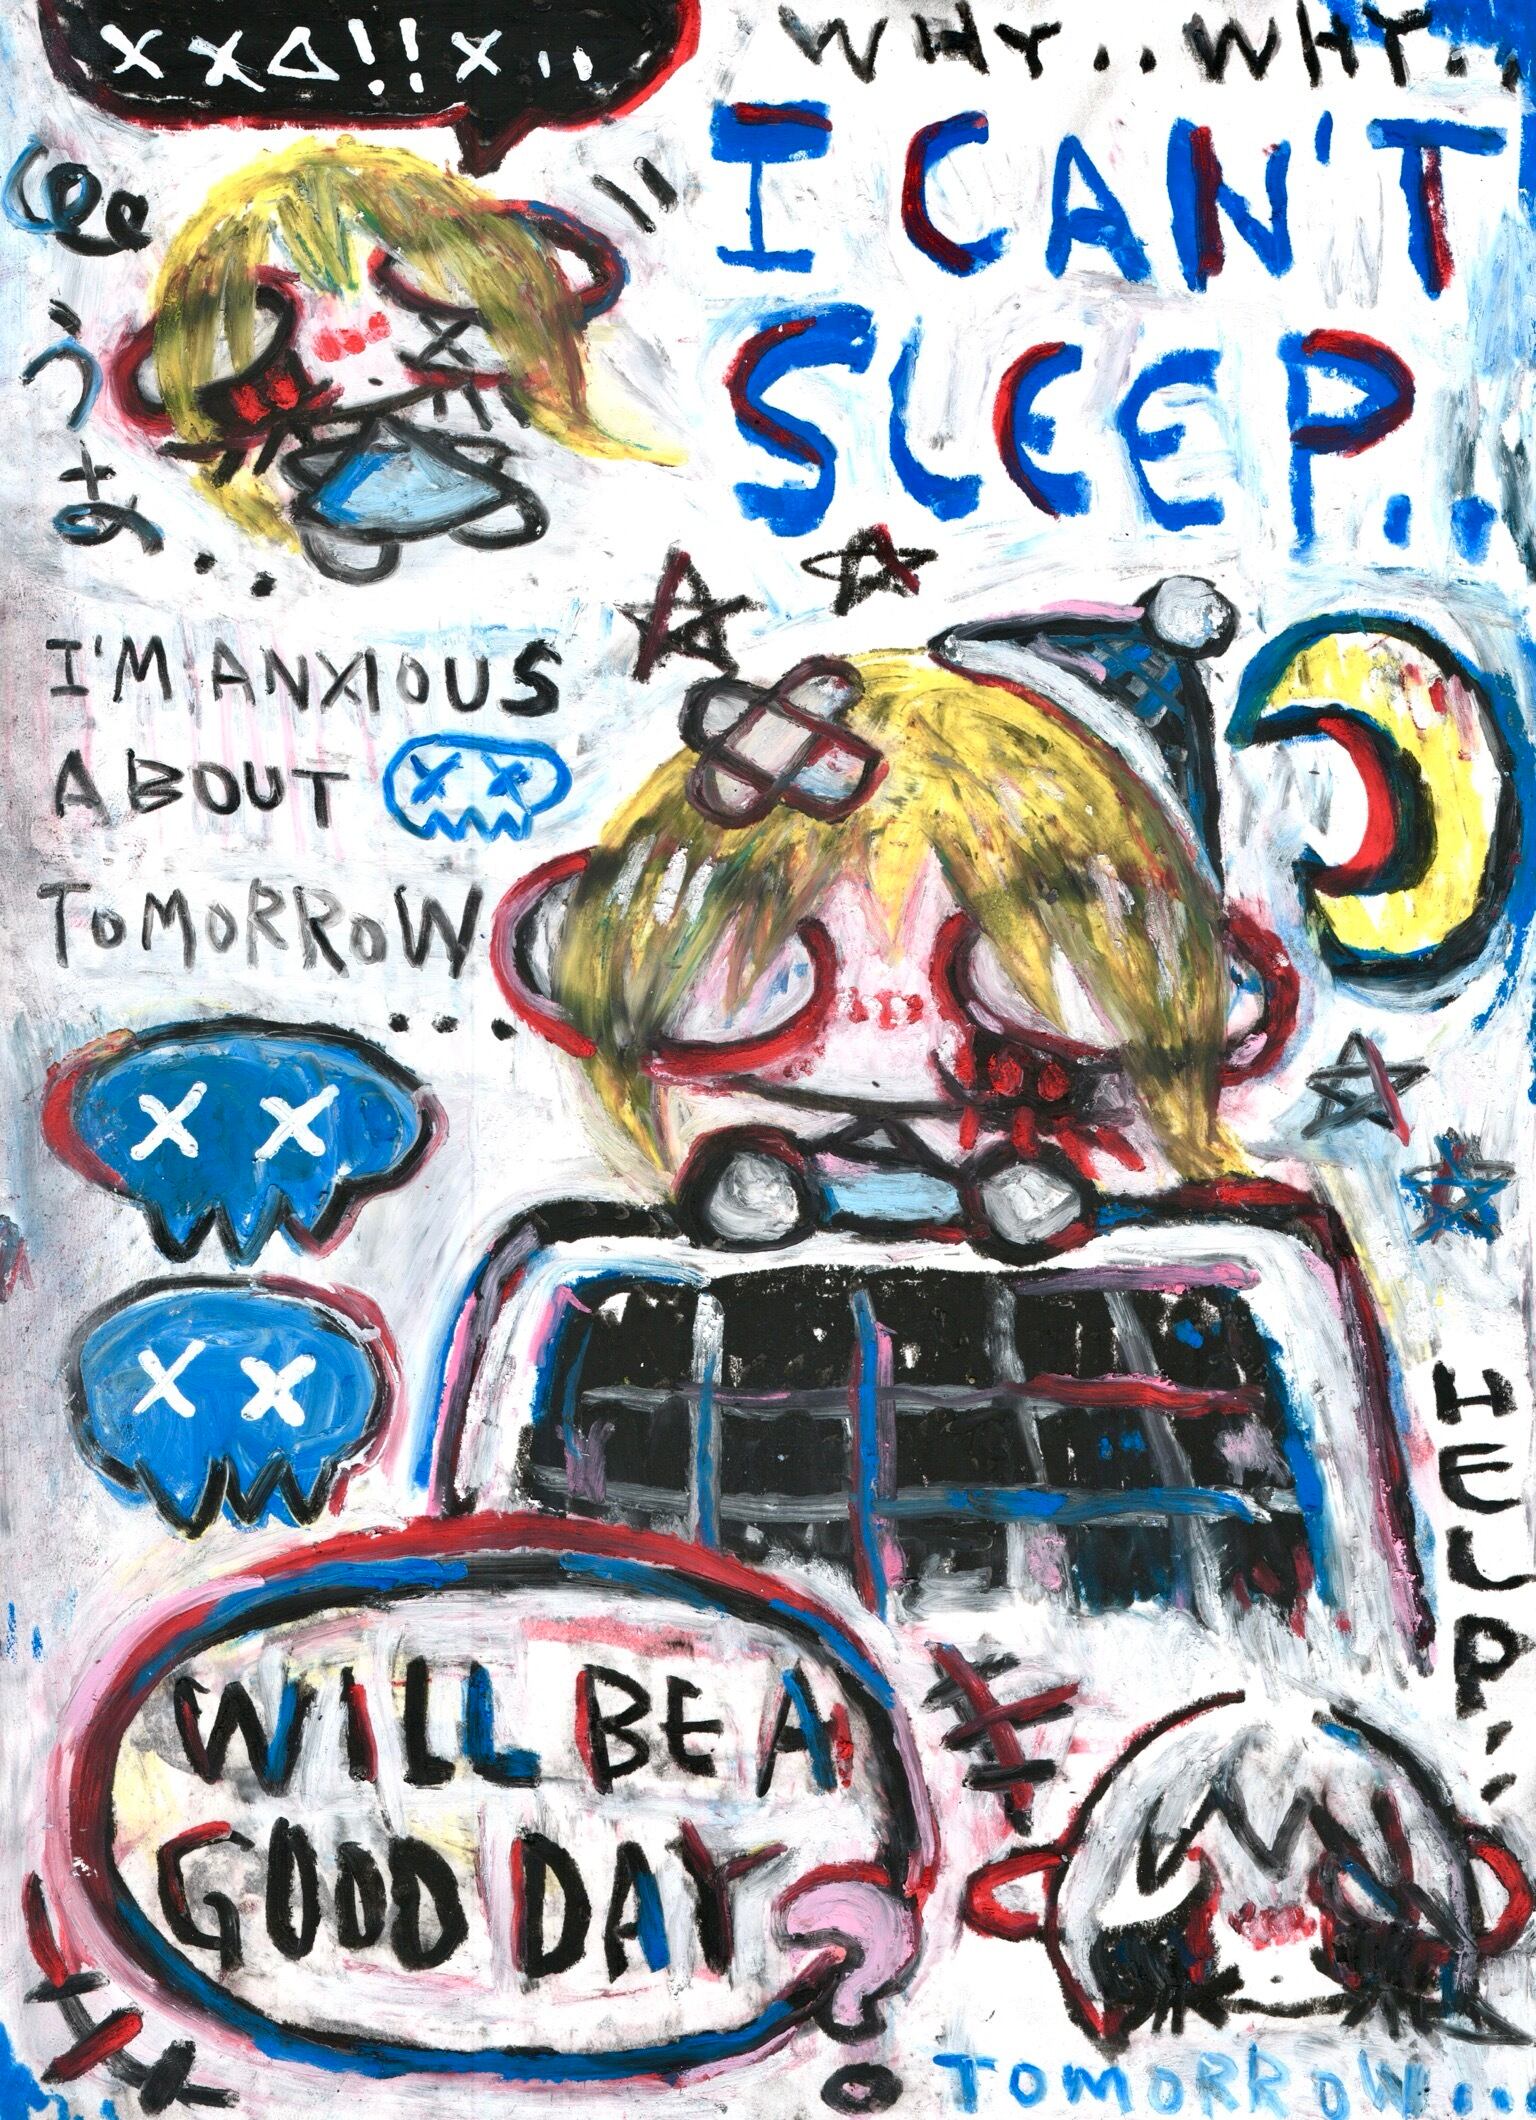 xx△!!x..
WHY..WHY..
I CAN'T
SLEEP..
うな..
I'M ANXIOUS
ABOUT
TOMORROW
...
HELP,,
WILL BE A
GOOD DAY
?
TOMORROW...